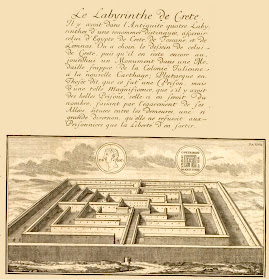 Le Labyrinthe de Crete.
Il y avoit dans l'Antiquité quatre Laby-
rinthes d'une renommée distinguée, assavoir
celui d'Egypte de Crete de Toscane et de
Lemnos. On a choisi le dessein de celui
de Crete puis qu'il en reste encore au-
jourdhui un Monument dans une Me-
daille frappée de la Colonie Julienne
à la nouvelle Carthage; Plutarque en
Thesée dit que ce fut une Prison mais
d'une telle Magnificence, que s'il y avoit
des belles Prisons, celle-ci en seroit du
nombre, faisant par l'egarement de ses
Allées, situées entre les demeures, une si
grande diversion, qu'elle ne refusoit aux
Prisonniers que la Liberté d'en sortir.